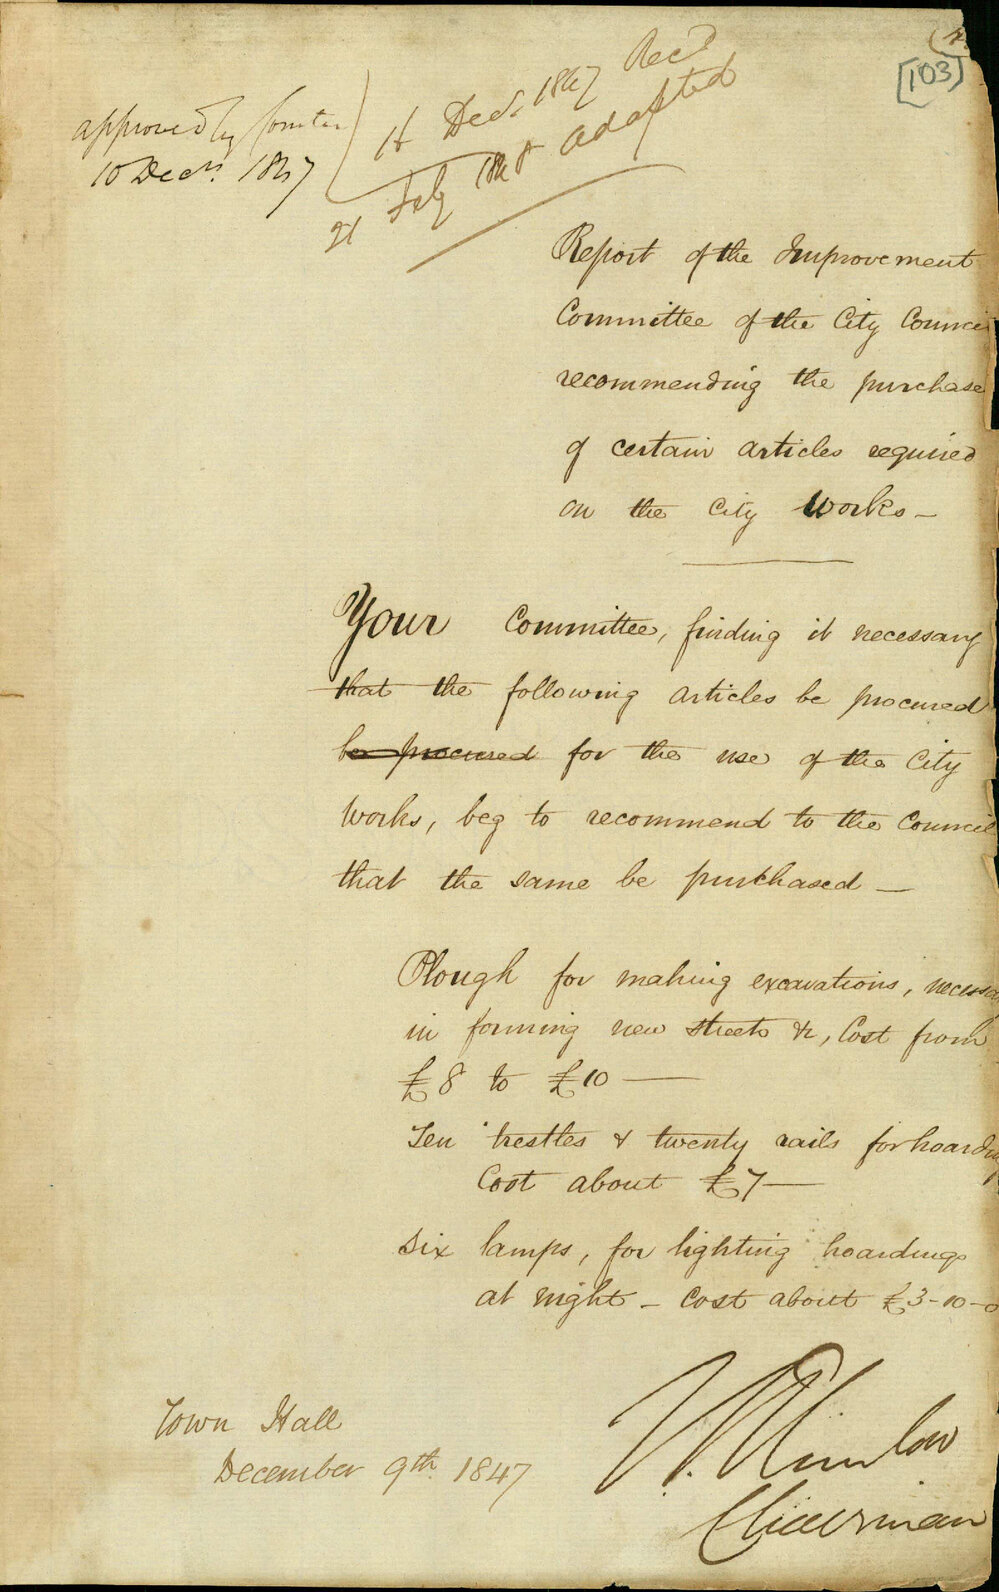 [103]
approved by Comtee
10 Decr. 1847
14 Decr. 1847 Recd
21 July 1848 adopted
Report of the Improvement
Committee of the City Council
recommending the purchase
of certain articles required
on the City Works –
Your Committee, finding it necessary
that the following articles be procured
be procured for the use of the City
Works, beg to recommend to the Council
that the same be purchased –
Plough for making excavations, necessa
in forming new streets &c, Cost from
£8 to £10 —
Ten trestles & twenty rails for hoarding
Cost about £7 —
Six lamps, for lighting hoardings
at night – Cost about £3-10-0
Town Hall
December 9th 1847
Chairman